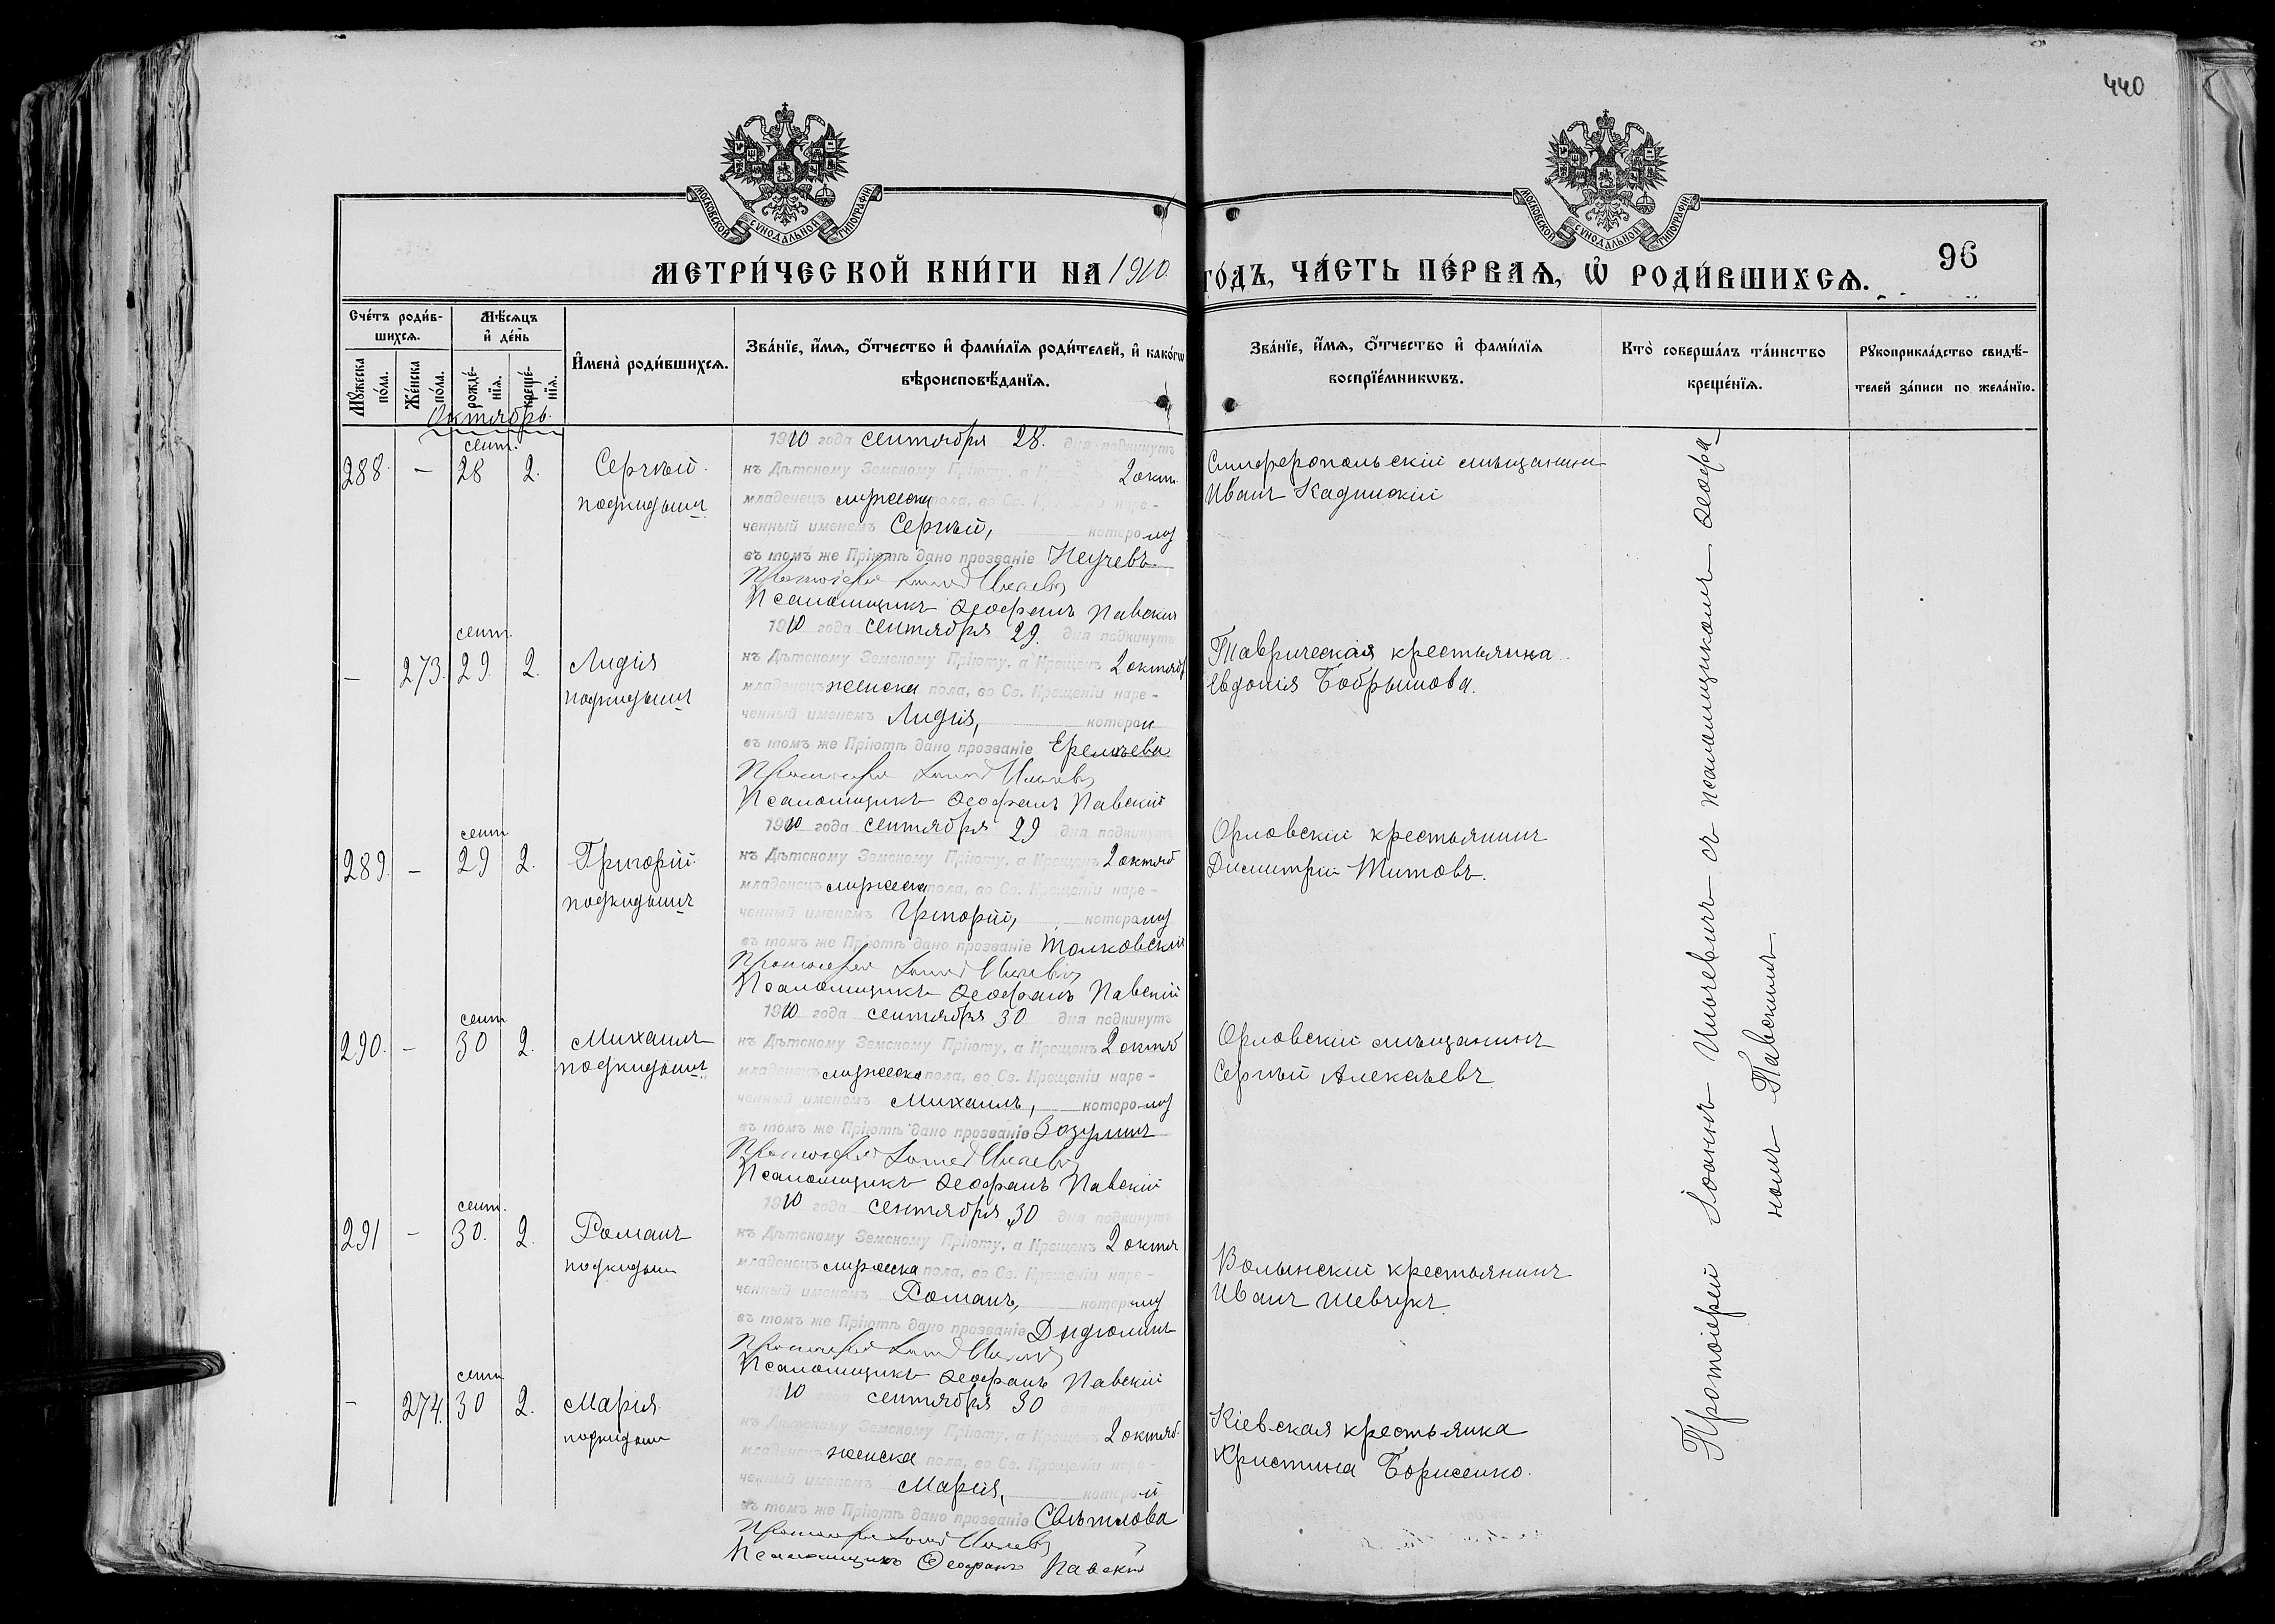 440
МОСКОВСКОЙ СѴНОДАЛЬНОЙ ТИПОГРАФІИ
МОСКОВСКОЙ СѴНОДАЛЬНОЙ ТИПОГРАФІИ
96
МЕТРИ́ЧЕСКОЙ КНИ́ГИ НА 1910 ГО́ДЪ, ЧА́СТЬ ПЕ́РВАѦ, Ѡ҆ РОДИ́ВШИХСѦ.
Сче́тъ роди́в-
шихсѧ.
Мѣ́сѧцъ
и҆ де́нь
Мꙋ́жеска
по́ла.
Же́нска
по́ла.
рожде́-
нїѧ.
креще́-
нїѧ.
И҆мена̀ роди́вшихсѧ.
Зва́нїе, и҆́мѧ, ѻ҆́тчество и҆ фами́лїѧ роди́телей, и҆ како́гѡ
вѣроисповѣ́данїѧ.
Зва́нїе, и҆́мѧ, ѻ҆́тчество и҆ фами́лїѧ
воспрїе́мникѡвъ.
Кто̀ соверша́лъ та́инство
креще́нїѧ.
Рꙋкоприкла́дство свидѣ́-
телей за́писи по жела́нїю.
Октябрь.
288. — сент. 28 2.
Сергѣй
подкидышъ
1910 года сентября 28. дня подкинутъ
къ Дѣтскому Земскому Пріюту, а 2 окт.
младенецъ мужеска пола, во Св. наре-
ченный именемъ Сергѣй, которому
въ томъ же Пріютѣ дано прозваніе
Протоіерей Іоаннъ Ильчевичъ
Псаломщикъ Ѳеофанъ Павскій
Симферопольскій мѣщанинъ
Иванъ Кадинскій
— 273. сент. 29. 2.
Лидія
подкидышъ
1910 года сентября 29. дня подкинутъ
къ Дѣтскому Земскому Пріюту, а Крещенъ 2 октяб
младенецъ женска пола, во Св. Крещеніи наре-
ченный именемъ Лидія, которой
въ томъ же Пріютѣ дано прозваніе
Протоіерей Іоаннъ Ильчевичъ
Псаломщикъ Ѳеофанъ Павскій
Таврическая крестьянка
Евдокія Бобрышова.
289. — сент 29 2.
Григорій
подкидышъ
1910 года сентября 29 дня подкинутъ
къ Дѣтскому Земскому Пріюту, а Крещенъ 2 октяб
младенецъ мужеска пола, во Св. Крещеніи наре-
ченный именемъ Григорій, которому
въ томъ же Пріютѣ дано прозваніе Толковскій
Протоіерей Іоаннъ Ильчевичъ
Псаломщикъ Ѳеофанъ Павскій
Орловскій крестьянинъ
Димитрій Титовъ.
290. — сент 30 2.
Михаилъ
подкидышъ
1910 года сентября 30 дня подкинутъ
къ Дѣтскому Земскому Пріюту, а Крещенъ 2 октяб
младенецъ мужеска пола, во Св. Крещеніи наре-
ченный именемъ Михаилъ, которому
въ томъ же Пріютѣ дано прозваніе Зозулинъ
Протоіерей Іоаннъ Ильчевичъ
Псаломщикъ Ѳеофанъ Павскій
Орловскій мѣщанинъ
Сергѣй Алексѣевъ
291 — сент. 30. 2.
Романъ
подкидыш
1910 года сентября 30 дня подкинутъ
къ Дѣтскому Земскому Пріюту, а Крещенъ 2 октя
младенецъ мужеска пола, во Св. Крещеніи наре-
ченный именемъ Романъ, которому
въ томъ же Пріютѣ дано прозваніе
Протоіерей Іоаннъ Ильчевичъ
Псаломщикъ Ѳеофанъ Павскій
Волынскій крестьянинъ
Иванъ Шевчукъ.
— 274. сент 30 2.
Марія
подкидыш
10 сентября 30
къ Дѣтскому Земскому Пріюту, а 2 октяб.
младенецъ женска пола, во Св. Крещеніи наре-
ченный именемъ Марія, которой
въ томъ же Пріютѣ дано прозваніе Свѣтлова
Протоіерей Іоаннъ Ильчевичъ
Псаломщикъ Ѳеофанъ Павскій
Кіевская крестьянка
Христина Борисенко.
Протоіерей Іоаннъ Ильчевичъ съ псаломщикомъ Ѳеофа-
номъ Павскимъ.